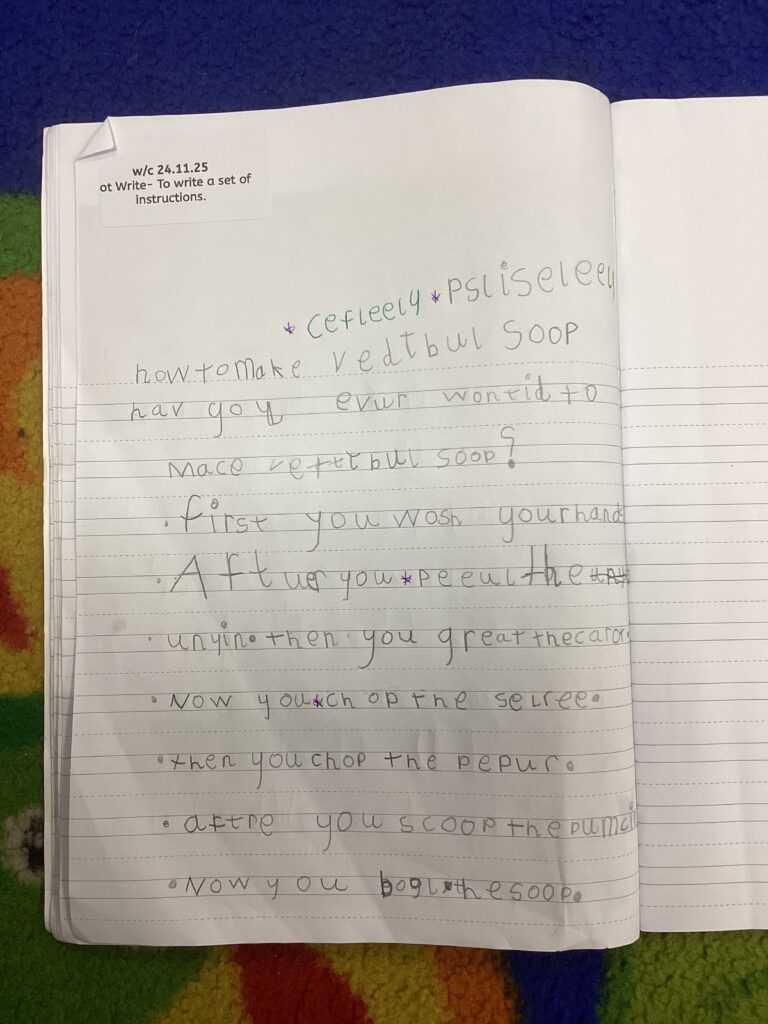 w/c 24.11.25
ot Write- To write a set of
instructions.
* cefleely * psliseleey
how to make vedtbul soop
hav you evur wontid to
mace vettbul soop?
. first you wosh your hands
. Aftuer you * peeul the
. unyin. then you great the caror
. Now you * chop the selree.
. then you chop the pepur.
. aftre you scoop the pumcin
. Now you bogl the soop.